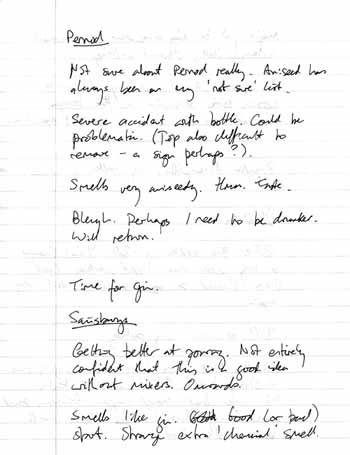 Pernod
Not sure about Pernod really. Aniseed has
always been on my 'not sure' list.
Severe accident with bottle. Could be
problematic. (Top also difficult to
remove - a sign perhaps?).
Smells very aniseedy. Hmm. Taste.
Bleugh. Perhaps I need to be drunker.
Will return.
Time for gin.
Sainsburys
Getting better at pouring. Not entirely
confident that this is a good idea
without mixers. Onwards.
Smells like gin. Good (or bad)
start. Strange extra 'chemical' smell.